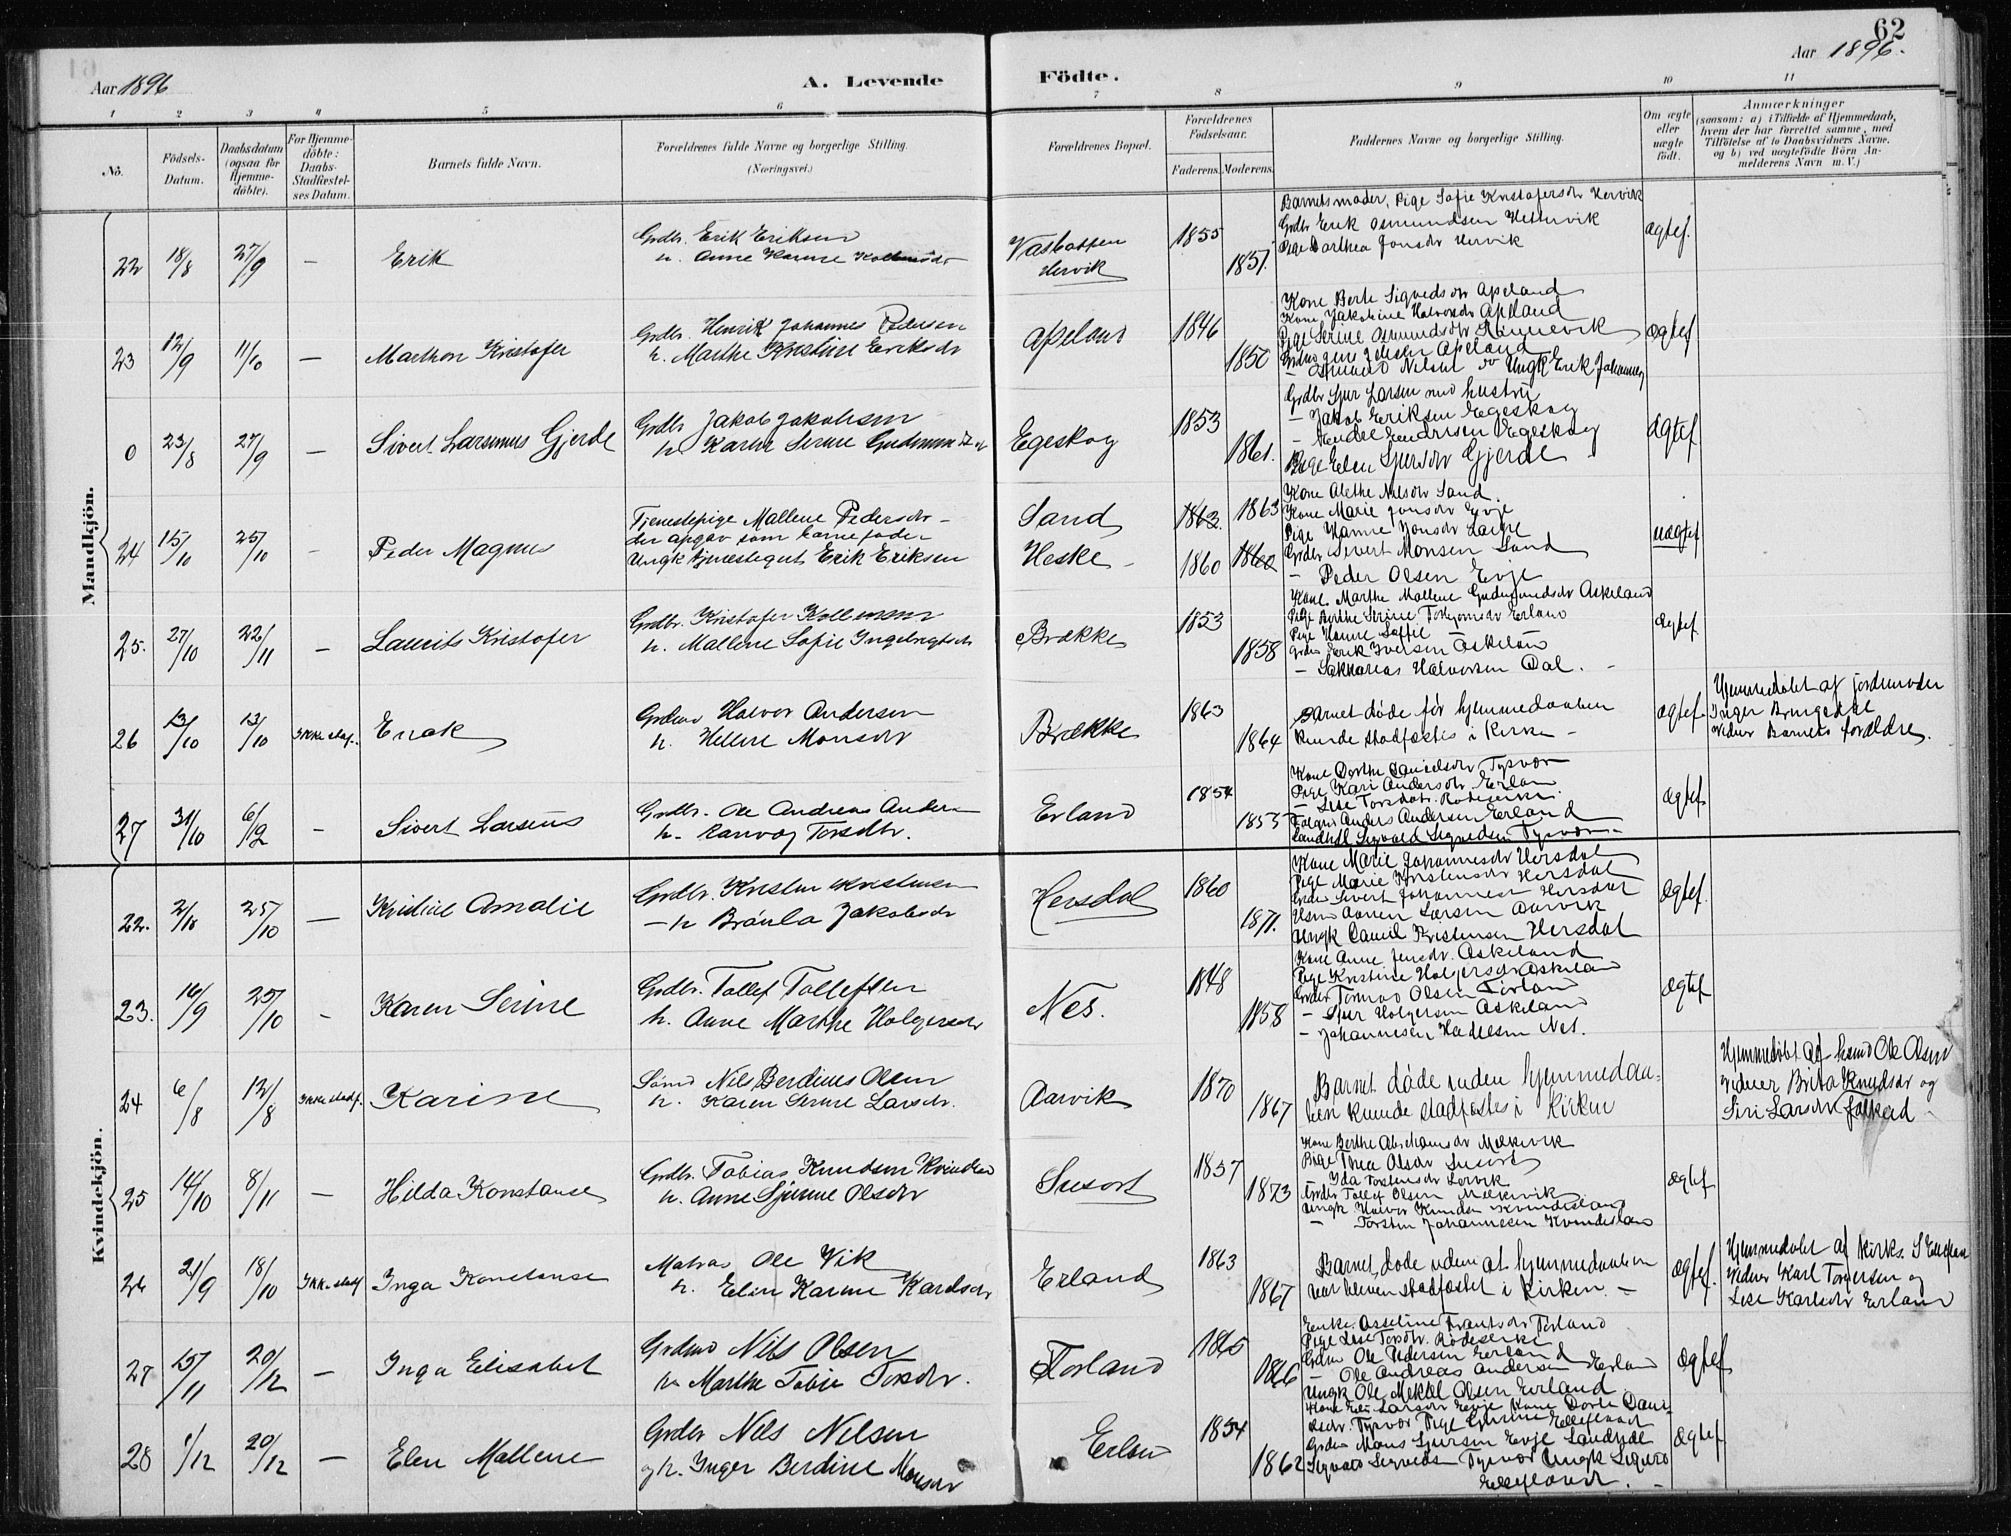 62
Aar 1896
A. Levende
Födte.
Aar 1896.
1 2 3 4 5 6 7 8 9 10 11
No.
Födsels-Datum.
Daabsdatum (ogsaa for Hjemmedöbte).
For Hjemmedöbte: Daabs-Stadfæstelses Datum.
Barnets fulde Navn.
Forældrenes fulde Navne og borgerlige Stilling. (Næringsvei.)
Forældrenes Bopæl.
Forældrenes Födselsaar.
Faderens. Moderens.
Faddernes Navne og borgerlige Stilling.
Om ægte eller uægte födt.
Anmærkninger
(saasom: a) i Tilfælde af Hjemmedaab, hvem der har forrettet samme, med Tilföielse af to Daabsvidners Navne, og b) ved uægtefödte Börn Anmelderens Navn m. V.)
Mandkjön.
22 18/8 27/9 — Erik
Grdbr. Erik Eriksen
h. Anne Karine
Hervik
1855
1857.
Barnets moder, Pige Sofie Kristofersdr Hervik
Grdbr Erik Osmundsen Hettervik
Pige Darthea Jonsdr Hervik
ægtef.
23 12/9 11/10 — Marthon Kristofer
Grdbr. Henrik Johannes Pedersen
h. Marthe Kristine Eriksdr
Apeland
1846
1850
Kone Berte Sigvedsdr Apeland
Kone Jakobine Halvorsdr Apeland
Pige Serine Osmundsdr
Apeland
Nilsen Ungk Erik Johannes
ægtef
0 23/8 27/9 — Sivert Larsinus Gjerde
Grdbr Jakob Jakobsen
h. Karen Serine
Egeskog
1853
1861.
Grdbr Sjur Larsen med hustru
— Jakob Eriksen Egeskog
— Endre Endresen Egeskog
Pige Elen Sjursdr Gjerde
ægtef
24 15/10 25/10 - Peder Magnus
Tjenestepige Mallene Pedersdr —
der opgav som barnefader
Ungk tjenestegut Erik Eriksen
Sand
Heske -
1862. 1863
1860 1860
Kone Alethe Nilsdr Sand.
Kone Marie Jonsdr Evje
Pige Hanne Jonsdr
Grdbr Sivert Monsen Sand
— Peder Olsen Evje
uægtef
25. 27/10 22/11 — Laurits Kristofer
Grdbr. Kristofer
h. Mallene Sofie Ingebregtsdr
Brække
1853
1858
Kone Marthe Mallene Gudmundsdr Askeland
Pige Berthe Serine Erland
Pige Hanne
Grdbr Erik Iversen Askeland
— Sakkarias Halvorsen Dal.
ægtef
26 13/10 13/10 Ikke staf. Enok
Grdmd Halvor Andersen
h. Hellene Monsdr
Brække
1863
1864
Barnet döde för hjemmedaaben
kunde stadfæstes i Kirke —
ægtef.
Hjemmedöbt af jordmoder
Inger
vidner Barnets forældre.
27 31/10 6/12 - Sivert Larsens
Grdbr. Ole Andreas Andersen
h. Ranvog Torsdtr.
Erland
1854
1853
Kone Dorthe Danielsdr Tysvær
Pige Kari Andersdr Erland
— Lise Torsdtr.
Anders Andersen Erland
Landhdl Sigvald Sigvedsen Tysvær —
ægtef
Kvindekjön.
22. 2/10 25/10 — Kristine Amalie
Grdbr. Kristen Kristensen
— h Jakobsdr
Hersdal
1860
1871.
Kone Marie Johannesdr Hersdal
Pige Marie Kristensdr Hersdal
Grdbr Sivert Johannesen Hersdal
Aanen Larsen Aarvik
Ungk Daniel Kristensen Hersdal
ægtef.
23. 16/9 25/10 - Karen Serine
Grdbr. Tollef Tollefsen
h. Anne Marthe Holgersdr
Nes.
1848
1858
Kone Anne Jensdr. Askeland
Pige Kristine Holgersdr Askeland
Grdbr Tormod Olsen
— Sjur Holgersen Askeland
— Johannesen Nes.
ægtef
24 6/8 12/8 Ikke stadf. Karine
Nils Berdines Olsen
h. Karen Serine Larsdr.
Aarvik
1870
1867
Barnet döde inden hjemmedaa-
ben kunde stadfæstes i Kirken
Hjemmedöbt af Ole Olsen
vidner Brita Knudsdr og
Siri Larsdr
25 14/10 8/11 — Hilda Konstanse
Grdbr. Tobias Knudsen
h. Anne Olsdr
Susort
1857
1873
Kone Berthe Abrahamsdr
Pige Thea Olsdr Susort
Ida Torstensdr
Grdbr Tollef Olsen
Ungk Halvor Knudsen Kvindesland
— Torsten Johannesen Kvindesland
ægtef
26 21/9 18/10 Ikke stadf Inga Konstanse
Matros Ole Vik
h. Elen Karine Karlsdr
Erland
1863
1867
Barnet döde uden at hjemmedaaben
var bleven stadfæstet i Kirken. —
ægtef.
Hjemmedöbt af Kirks.
vidner Karl Torgersen og
Lise Karlsdr Erland
27 15/11 20/12 — Inga Elisabet
Grdmd Nils Olsen
h. Marthe Torsdr.
Forland
1865
1866
Enke Asseline
Pige Lise Torsdtr.
Grdbr Ole Erland
— Ole Andreas Andersen Erland
Ungk Ole Mekal Olsen Erland
ægtef
28 1/12 20/12 — Elen Mallene
Grdbr Nels Nelsen
og h. Inger Berdine Monsdr
Erland
1854
1862
Kone Larsdr Evje Kone Dorte Dani-
elsdr. Tysvær Pige
Grdbr Mons Sjursen Evje Landhdl
Sigvald Sigvedsen Tysvær Ungk Sigurd
ægtef